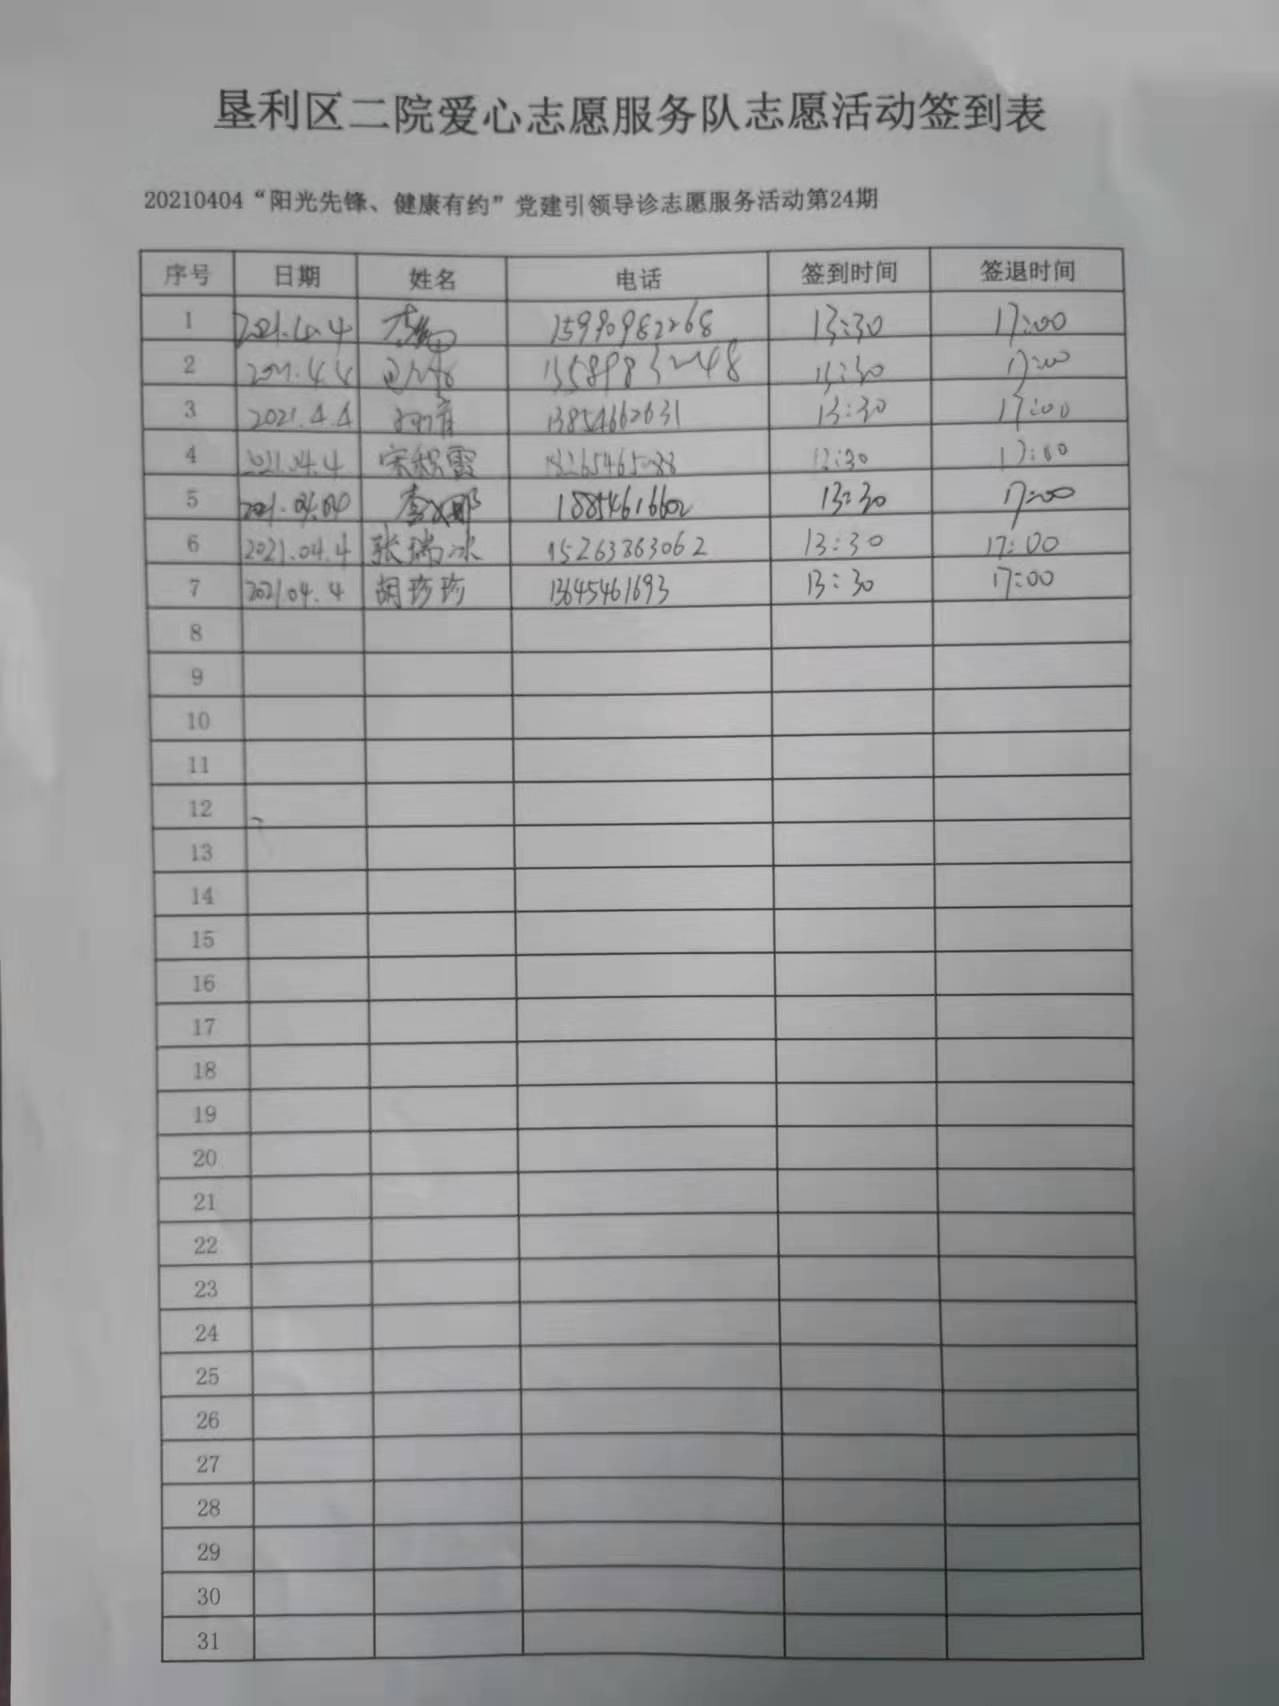 垦利区二院爱心志愿服务队志愿活动签到表
20210404“阳光先锋、健康有约”党建引领导诊志愿服务活动第24期
序号 日期 姓名 电话 签到时间 签退时间
1 2021.4.4 15990982268 13:30 17:00
2 2021.4.4 13:30 17:00
3 2021.4.4 13854662631 13:30 17:00
4 2021.04.4 宋积霞 17:00
5 2021.04.04 李娜 18854616602 13:30 17:00
6 2021.04.4 张瑞冰 15263863062 13:30 17:00
7 2021.04.4 胡珍珍 13645461693 13:30 17:00
8
9
10
11
12
13
14
15
16
17
18
19
20
21
22
23
24
25
26
27
28
29
30
31